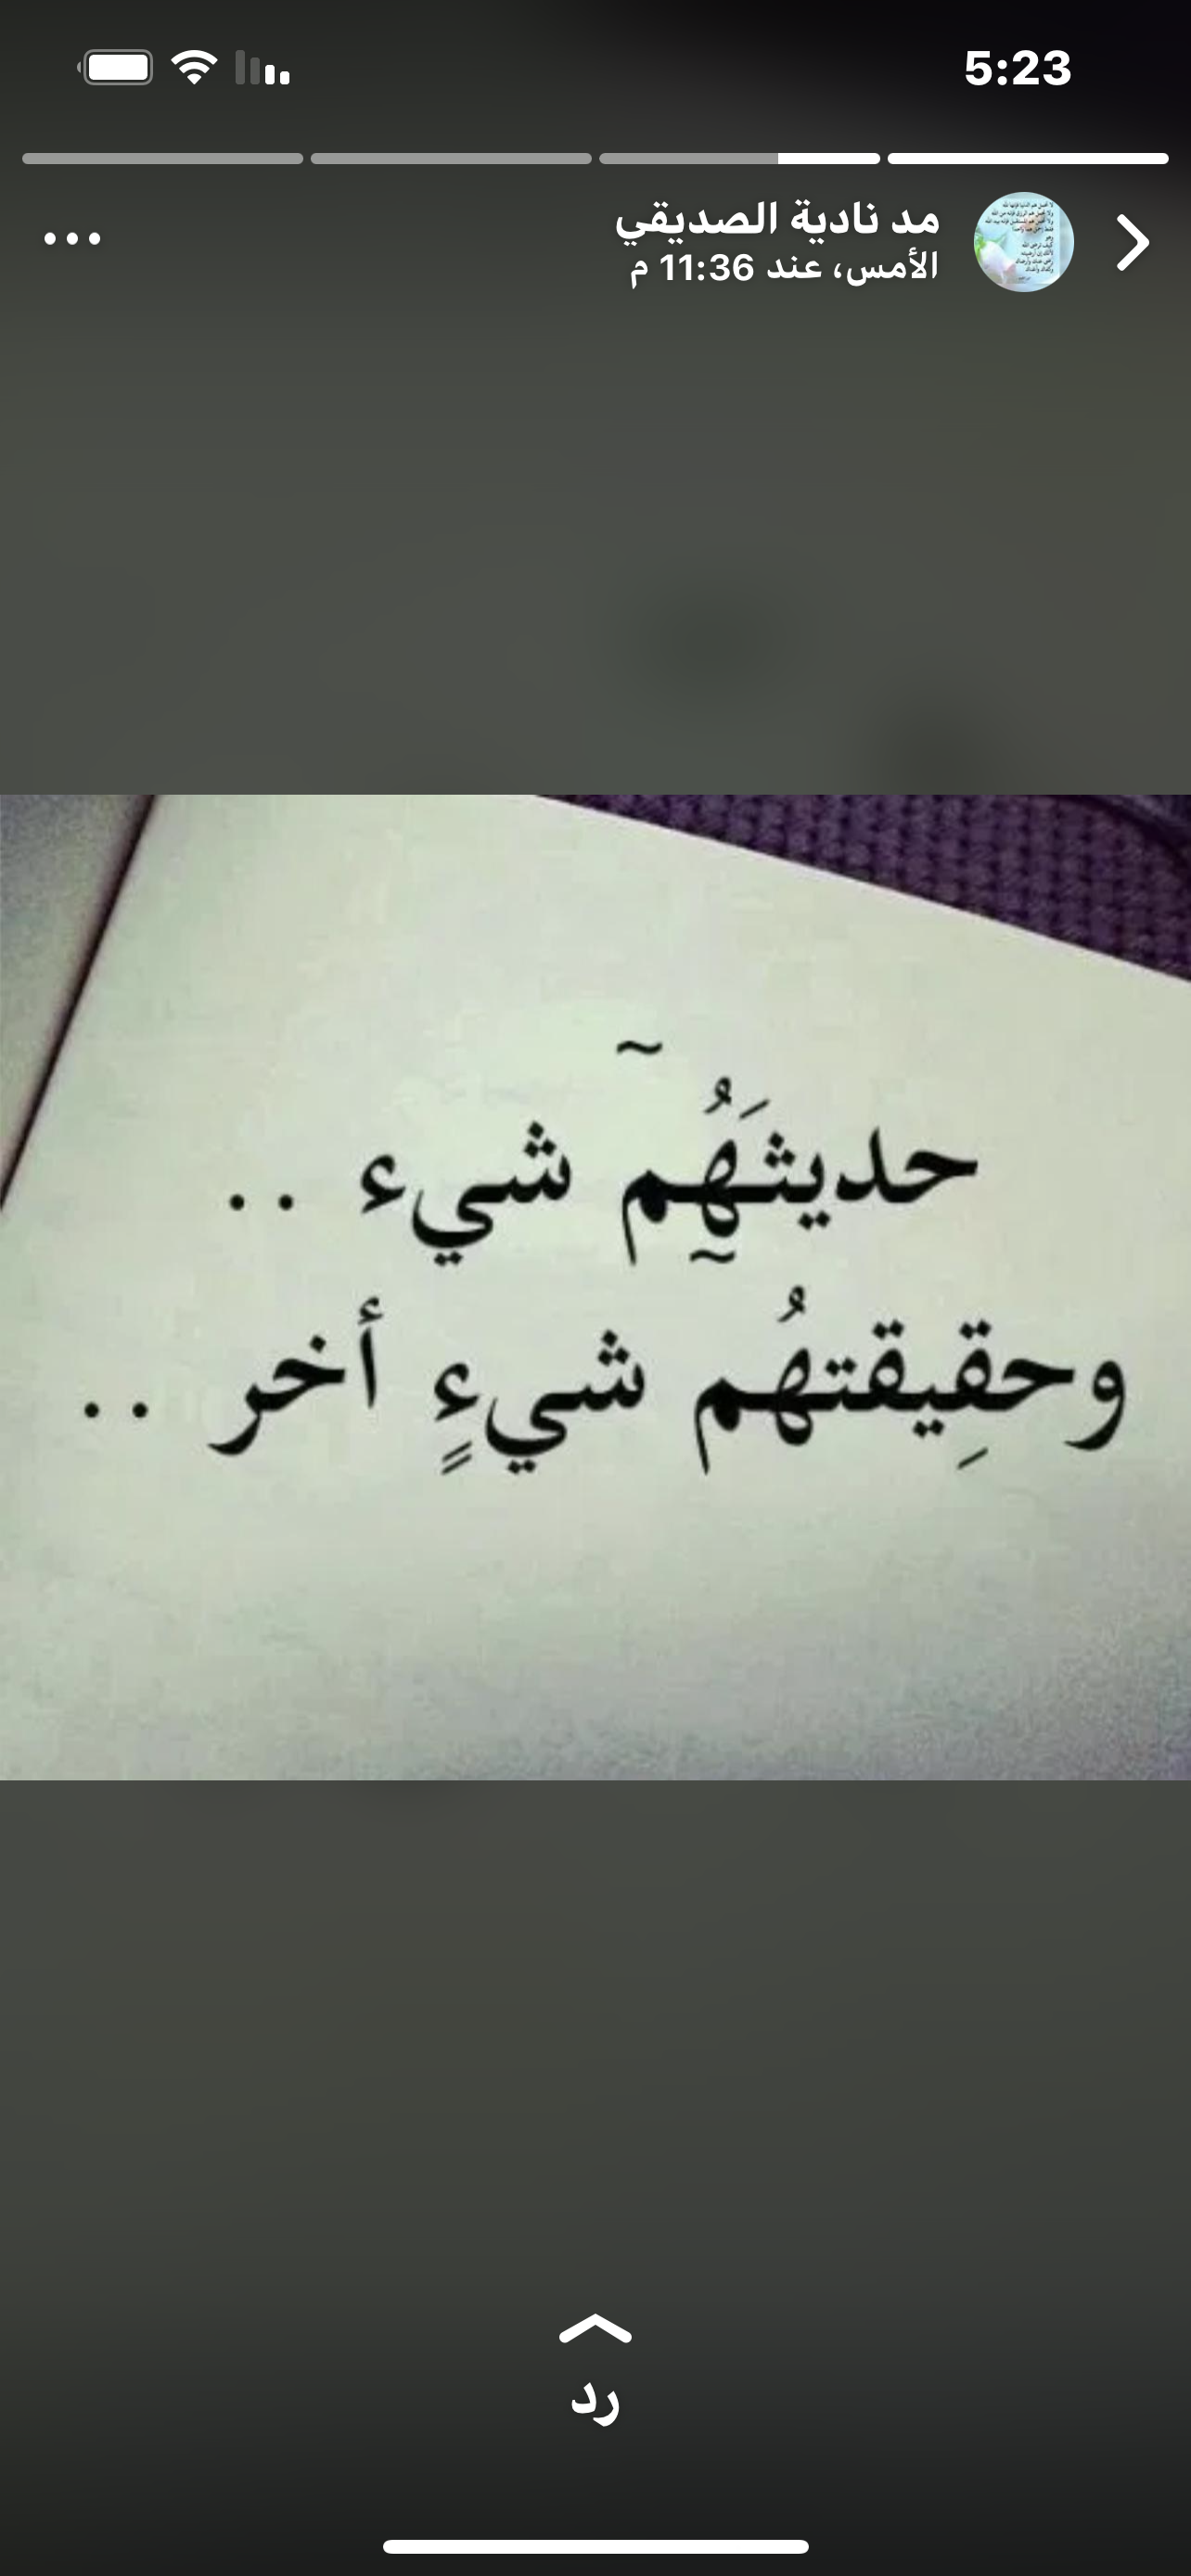 5:23
مد نادية الصديقي
الأمس، عند 11:36 م
حديثَهُم شيء . .
وحقِيقتهُم شيءٍ أخر . .
رد